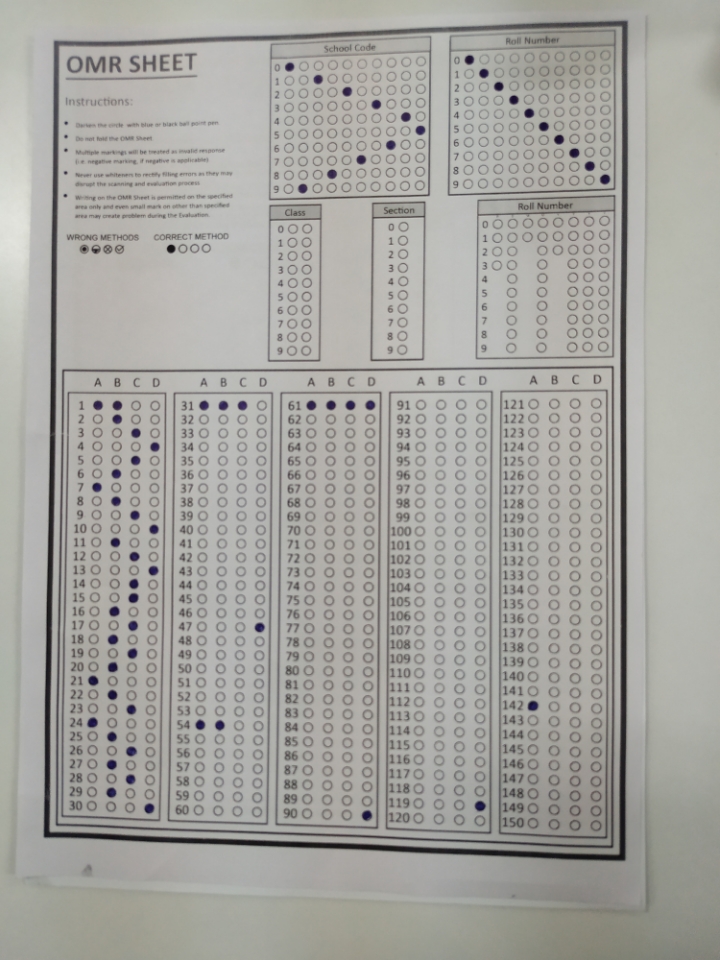 OMR SHEET
Instructions:
Darken the circle with blue or black ball point pen
Do not fold the OMR Sheet
Multiple markings will be treated as invalid response
(i.e. negative marking, if negative is applicable)
Never use whiteners to rectify filling errors as they may
disrupt the scanning and evaluation process
Writing on the OMR Sheet is permitted on the specified
area only and even small mark on other than specified
area may create problem during the Evaluation.
WRONG METHODS CORRECT METHOD
School Code
0
1
2
3
4
5
6
7
8
9
Roll Number
0
1
2
3
4
5
6
7
8
9
Class
0
1
2
3
4
5
6
7
8
9
Section
0
1
2
3
4
5
6
7
8
9
Roll Number
0
1
2
3
4
5
6
7
8
9
A B C D
1
2
3
4
5
6
7
8
9
10
11
12
13
14
15
16
17
18
19
20
21
22
23
24
25
26
27
28
29
30
A B C D
31
32
33
34
35
36
37
38
39
40
41
42
43
44
45
46
47
48
49
50
51
52
53
54
55
56
57
58
59
60
A B C D
61
62
63
64
65
66
67
68
69
70
71
72
73
74
75
76
77
78
79
80
81
82
83
84
85
86
87
88
89
90
A B C D
91
92
93
94
95
96
97
98
99
100
101
102
103
104
105
106
107
108
109
110
111
112
113
114
115
116
117
118
119
120
A B C D
121
122
123
124
125
126
127
128
129
130
131
132
133
134
135
136
137
138
139
140
141
142
143
144
145
146
147
148
149
150